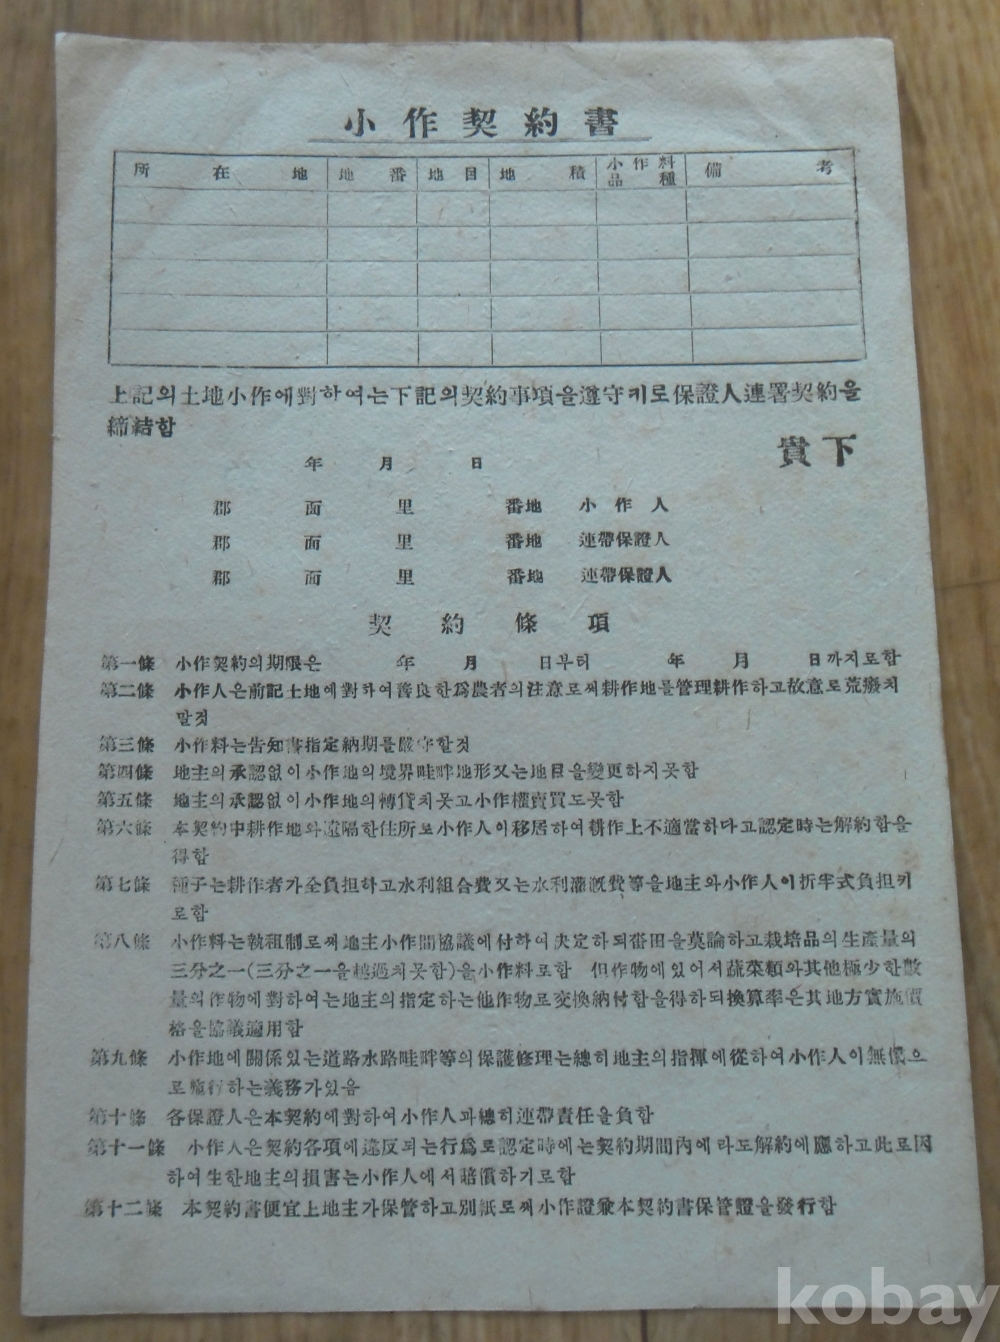 小作契約書
所在地 地番 地目 地積 小作料品種 備考
上記의土地小作에對하여는下記의契約事項을遵守키로保證人連署契約을
締結함
貴下
年 月 日
郡 面 里 番地 小作人
郡 面 里 番地 連帶保證人
郡 面 里 番地 連帶保證人
契約條項
第一條 小作契約의期限은 年 月 日부터 年 月 日까지로함
第二條 小作人은前記土地에對하여善良한爲農者의注意로써耕作地를管理耕作하고故意로荒廢치
말것
第三條 小作料는告知書指定納期를嚴守할것
第四條 地主의承認없이小作地의境界畦畔地形又는地目을變更하지못함
第五條 地主의承認없이小作地의轉貸치못고小作權賣買도못함
第六條 本契約中耕作地와遠隔한住所로小作人이移居하여耕作上不適當하다고認定時는解約함을
得함
第七條 種子는耕作者가全負担하고水利組合費又는水利灌漑費等을地主와小作人이折半式負担키
로함
第八條 小作料는執租制로써地主小作間協議에付하여決定하되畓田을莫論하고栽培品의生產量의
三分之一(三分之一을越過치못함)을小作料로함 但作物에있어서蔬菜類와其他極少한數
量의作物에對하여는地主의指定하는他作物로交換納付함을得하되換算率은其地方實施價
格을協議適用함
第九條 小作地에關係있는道路水路畦畔等의保護修理는總히地主의指揮에從하여小作人이無償으
로施行하는義務가있음
第十條 各保證人은本契約에對하여小作人과總히連帶責任을負함
第十一條 小作人은契約各項에違反되는行爲로認定時에는契約期間內에라도解約에應하고此로因
하여生한地主의損害는小作人에서賠償하기로함
第十二條 本契約書便宜上地主가保管하고別紙로써小作證兼本契約書保管證을發行함
kobay